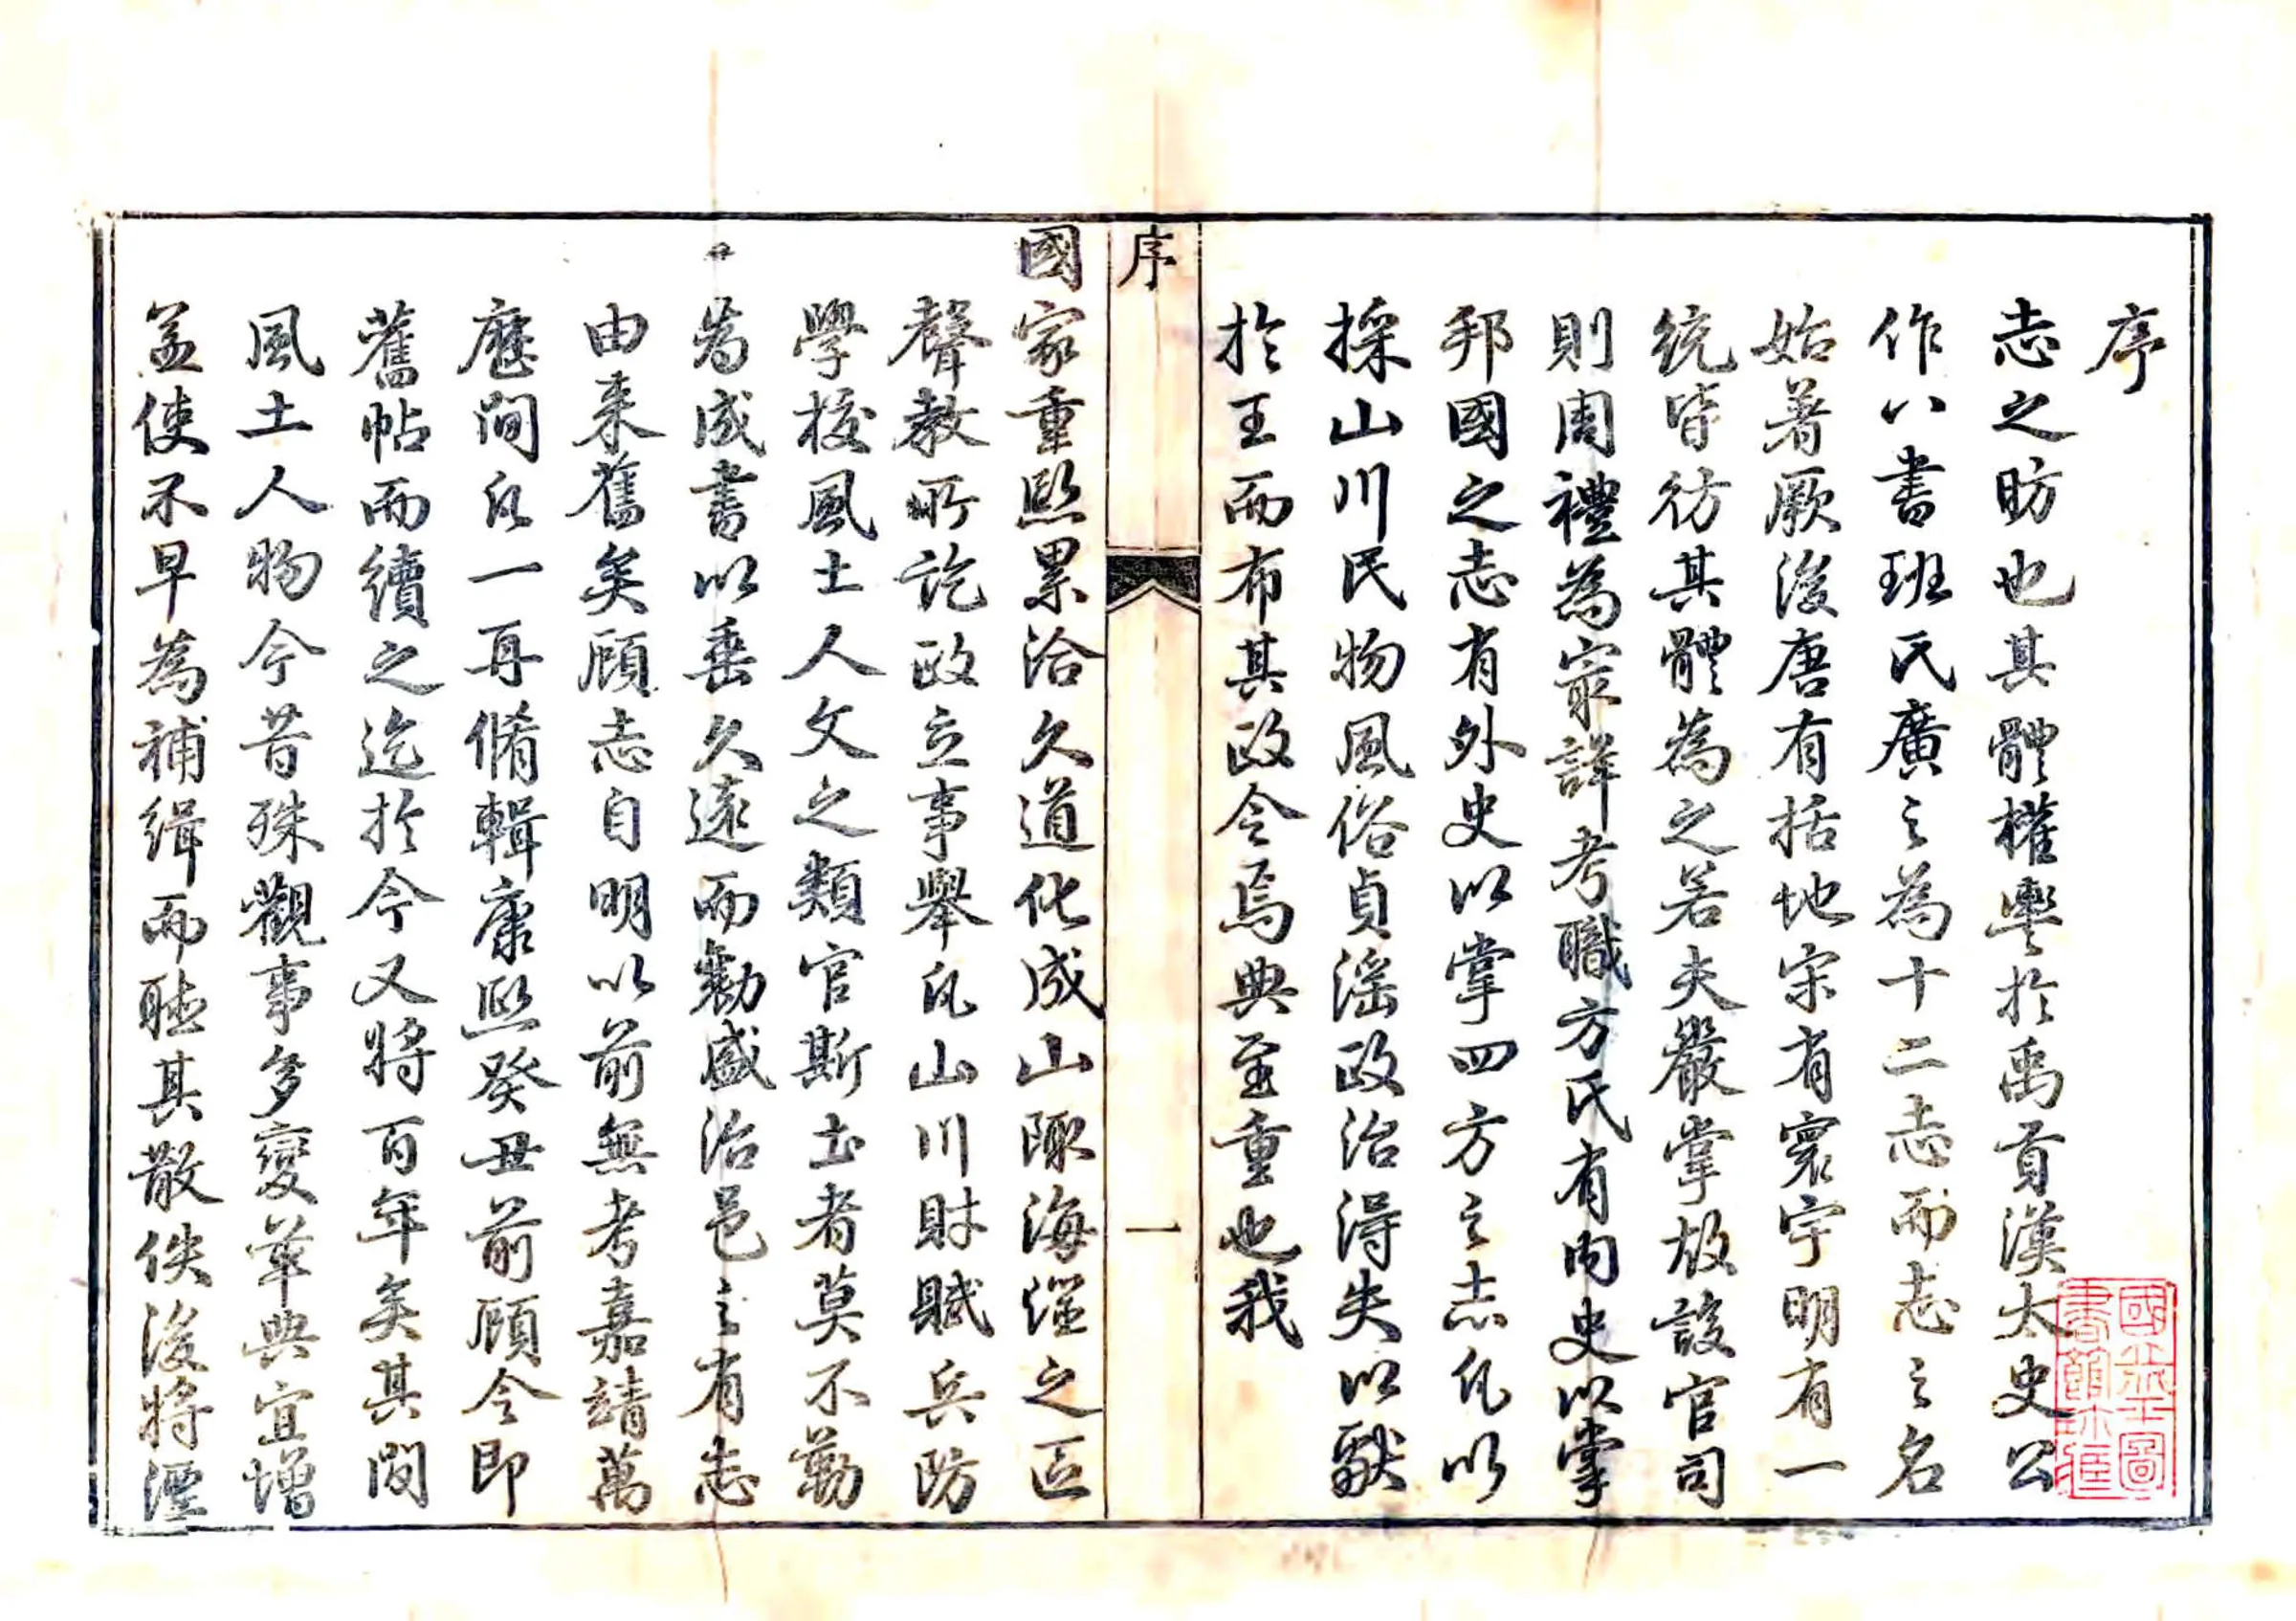 序
志之昉也其體權輿於禹貢漢太史公
作八書班氏廣之為十二志而志之名
始著厥後唐有括地宋有寰宇明有一
統皆彷其體為之若夫嚴掌故設官司
則周禮為宗詳考職方氏有內史以掌
邦國之志有外史以掌四方之志凡以
採山川民物風俗貞淫政治得失以獻
於王而布其政令焉典至重也我
序
一
國家重熙累洽久道化成山陬海澨之區
聲教所訖政立事舉凡山川財賦兵防
學校風土人文之類官斯土者莫不勤
為成書以垂久遠而勷盛治邑之有志
由來舊矣顧志自明以前無考嘉靖萬
歷間凡一再脩輯康熙癸丑前顧令即
舊帖而續之迄於今又將百年矣其間
風土人物今昔殊觀事多變革典宜增
益使不早為補緝而聽其散佚後將湮
國立北平圖書館珍藏